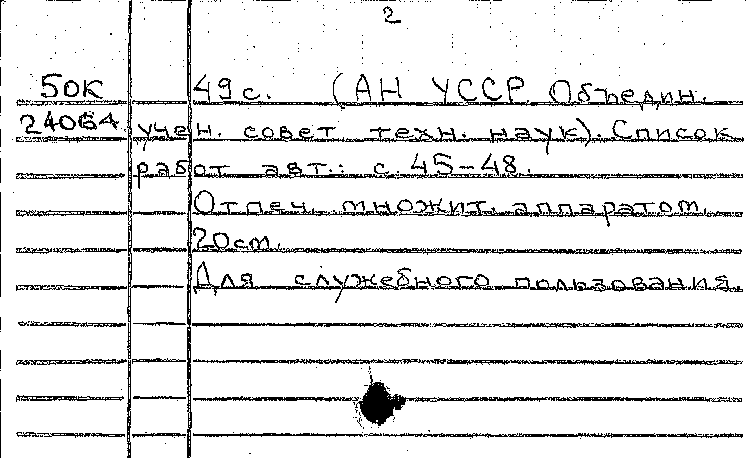 2
50К 49с. (АН УССР. Объедин.
24064 учен. совет техн. наук). Список
работ авт.: с.45-48.
Отпеч. множит. аппаратом.
20см.
Для служебного пользования.